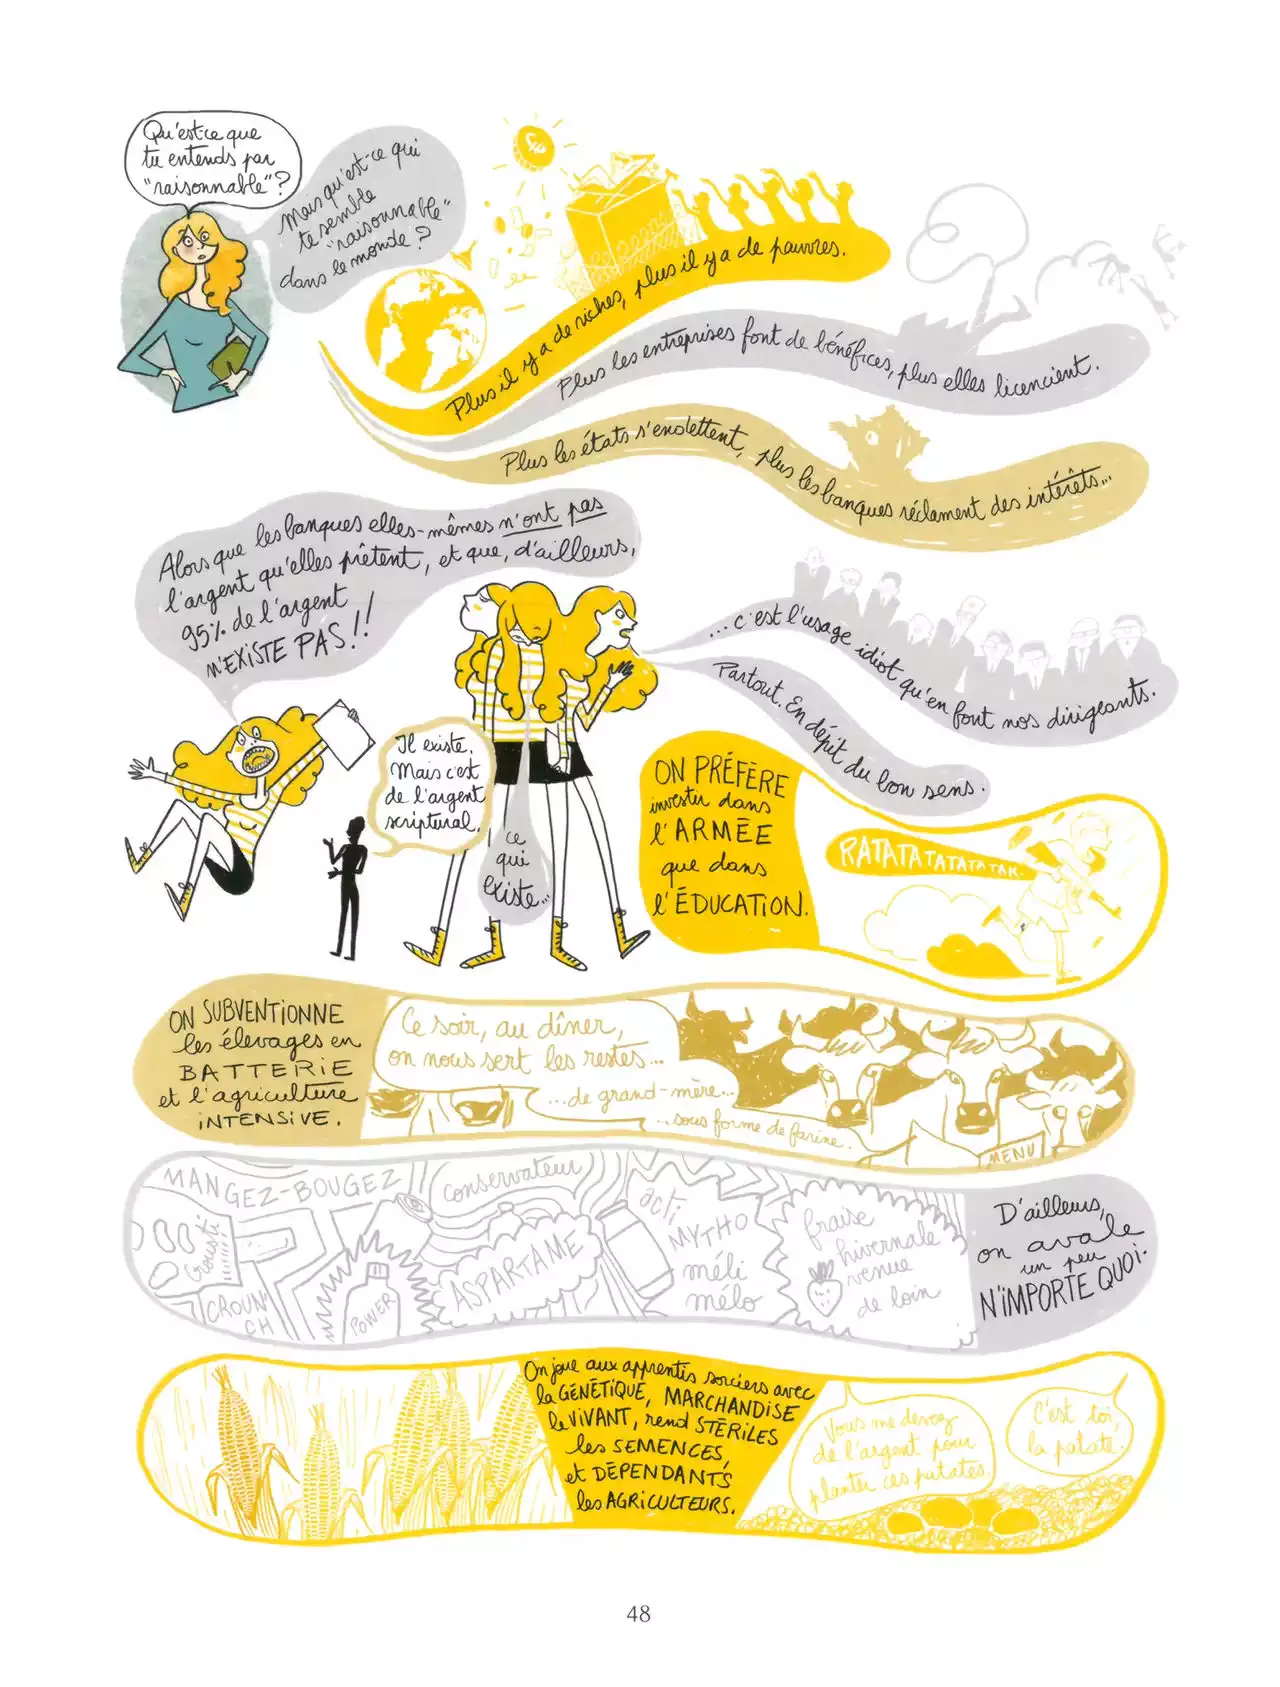 Qu'est-ce que
tu entends par
"raisonnable"?
Mais qu'est-ce qui
te semble
"raisonnable"
dans le monde?
Plus il y a de riches, plus il y a de pauvres.
Plus les entreprises font de bénéfices, plus elles licencient.
Plus les états s'endettent, plus les banques réclament des intérêts...
Alors que les banques elles-mêmes n'ont pas
l'argent qu'elles prêtent, et que, d'ailleurs,
95% de l'argent
N'EXISTE PAS!!
Il existe.
Mais c'est
de l'argent
scriptural.
ce
qui
existe...
...c'est l'usage idiot qu'en font nos dirigeants.
Partout. En dépit du bon sens.
ON PRÉFÈRE
investir dans
l'ARMÉE
que dans
l'ÉDUCATION.
RATATATATATATAK.
ON SUBVENTIONNE
les élevages en
BATTERIE
et l'agriculture
INTENSIVE.
Ce soir, au dîner,
on nous sert les restes...
...de grand-mère...
...sous forme de farine.
MENU
MANGEZ-BOUGEZ
Croust
CROUN
CH
POWER
conservateur
ASPARTAME
acti
MYTHO
méli
mélo
fraise
hivernale
venue
de loin
D'ailleurs,
on avale
un peu
N'IMPORTE QUOI.
On joue aux apprentis sorciers avec
la GÉNÉTIQUE, MARCHANDISE
le VIVANT, rend STÉRILES
les SEMENCES,
et DÉPENDANTS
les AGRICULTEURS.
Vous me devez
de l'argent pour
planter ces patates.
C'est toi,
la patate.
48